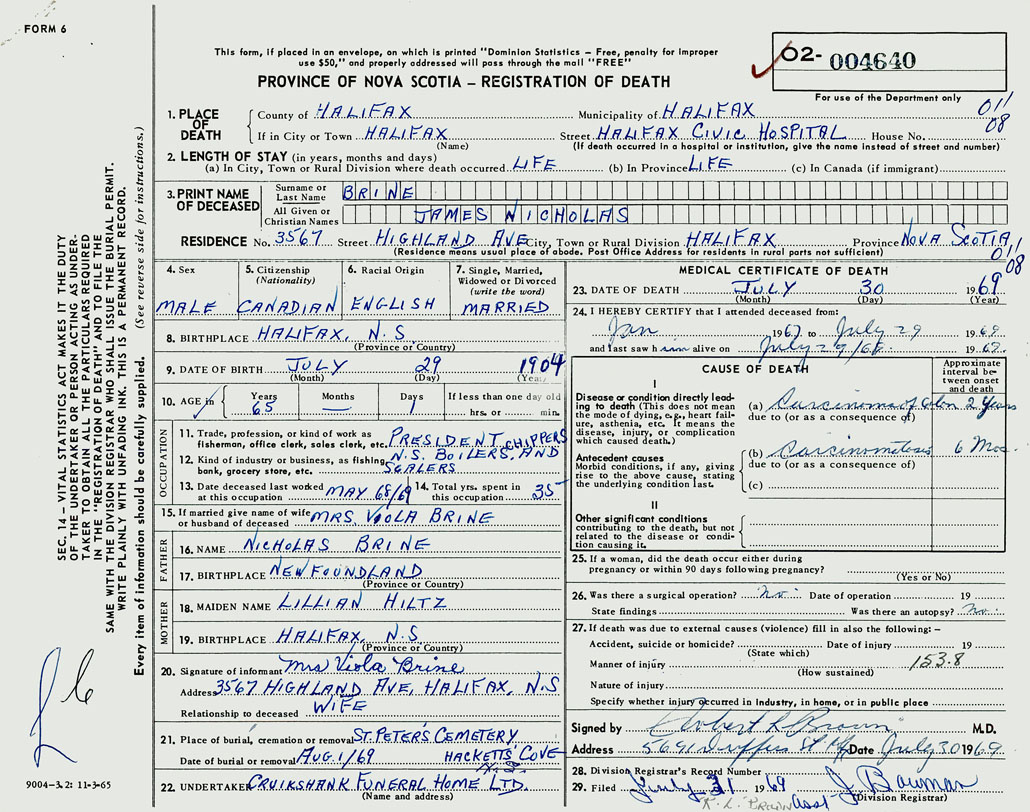 FORM 6
This form, if placed in an envelope, on which is printed "Dominion Statistics – Free, penalty for improper
use $50," and properly addressed will pass through the mail "FREE"
PROVINCE OF NOVA SCOTIA – REGISTRATION OF DEATH
02- 004640
For use of the Department only
011
08
1. PLACE OF DEATH
County of HALIFAX Municipality of HALIFAX
If in City or Town HALIFAX Street HALIFAX CIVIC HOSPITAL House No.
(Name) (If death occurred in a hospital or institution, give the name instead of street and number)
2. LENGTH OF STAY (in years, months and days)
(a) In City, Town or Rural Division where death occurred LIFE (b) In Province LIFE (c) In Canada (if immigrant)
3. PRINT NAME OF DECEASED
Surname or Last Name BRINE
All Given or Christian Names JAMES NICHOLAS
RESIDENCE No. 3567 Street HIGHLAND AVE City, Town or Rural Division HALIFAX Province NOVA SCOTIA
(Residence means usual place of abode. Post Office Address for residents in rural parts not sufficient)
011
08
4. Sex
MALE
5. Citizenship (Nationality)
CANADIAN
6. Racial Origin
ENGLISH
7. Single, Married, Widowed or Divorced (write the word)
MARRIED
8. BIRTHPLACE HALIFAX, N.S.
(Province or Country)
9. DATE OF BIRTH JULY 29 1904
(Month) (Day) (Year)
10. AGE in Years Months Days If less than one day old
65 — 1 hrs. or min.
OCCUPATION
11. Trade, profession, or kind of work as fisherman, office clerk, sales clerk, etc. PRESIDENT CHIPPERS
12. Kind of industry or business, as fishing, bank, grocery store, etc. N.S. BOILERS, AND SCALERS
13. Date deceased last worked at this occupation MAY 68/69 14. Total yrs. spent in this occupation 35
15. If married give name of wife or husband of deceased MRS. VIOLA BRINE
FATHER
16. NAME NICHOLAS BRINE
17. BIRTHPLACE NEWFOUNDLAND
(Province or Country)
MOTHER
18. MAIDEN NAME LILLIAN HILTZ
19. BIRTHPLACE HALIFAX, N.S
(Province or Country)
20. Signature of informant Mrs Viola Brine
Address 3567 HIGHLAND AVE, HALIFAX, N.S
Relationship to deceased WIFE
21. Place of burial, cremation or removal ST. PETER'S CEMETERY
Date of burial or removal AUG. 1/69 HACKETTS COVE
N.S.
22. UNDERTAKER CRUIKSHANK FUNERAL HOME LTD.
(Name and address)
MEDICAL CERTIFICATE OF DEATH
23. DATE OF DEATH JULY 30 1969
(Month) (Day) (Year)
24. I HEREBY CERTIFY that I attended deceased from:
Jan 1967 to July 29 1969
and last saw him alive on July 29/68 1969.
CAUSE OF DEATH
Approximate interval between onset and death
I
Disease or condition directly leading to death (This does not mean the mode of dying, e.g., heart failure, asthenia, etc. It means the disease, injury, or complication which caused death.)
(a) Carcinoma of Colon 2 Years
due to (or as a consequence of)
Antecedent causes
Morbid conditions, if any, giving rise to the above cause, stating the underlying condition last.
(b) Carcinomatosis 6 Mos.
due to (or as a consequence of)
(c)
II
Other significant conditions
contributing to the death, but not related to the disease or condition causing it.
25. If a woman, did the death occur either during pregnancy or within 90 days following pregnancy?
(Yes or No)
26. Was there a surgical operation? No. Date of operation 19
State findings Was there an autopsy? No.
27. If death was due to external causes (violence) fill in also the following: –
Accident, suicide or homicide? Date of injury 19
(State which)
Manner of injury 153.8
(How sustained)
Nature of injury
Specify whether injury occurred in Industry, in home, or in public place
Signed by Robert L Brown M.D.
Address 5691 St Hfx Date July 30 1969.
28. Division Registrar's Record Number
29. Filed July 31 1969 J. Bowman
R. L. BROWN Asst Division Registrar
SEC. 14 – VITAL STATISTICS ACT MAKES IT THE DUTY
OF THE UNDERTAKER OR PERSON ACTING AS UNDER-
TAKER TO OBTAIN ALL THE PARTICULARS REQUIRED
IN THE "REGISTRATION OF DEATH" AND TO FILE THE
SAME WITH THE DIVISION REGISTRAR WHO SHALL ISSUE THE BURIAL PERMIT.
WRITE PLAINLY WITH UNFADING INK. THIS IS A PERMANENT RECORD.
Every item of information should be carefully supplied. (See reverse side for instructions.)
9004-3.2: 11-3-65